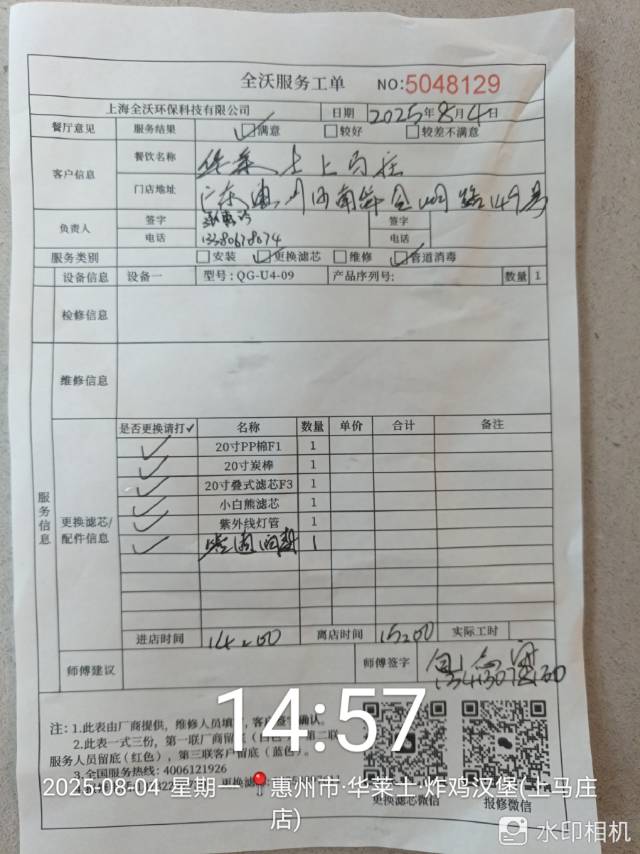 全沃服务工单 NO:5048129
上海全沃环保科技有限公司 日期 2025年8月4日
餐厅意见 服务结果 ☑满意 □较好 □较差不满意
客户信息 餐饮名称 华莱士上马庄
门店地址 广东惠州 49号
负责人 签字 签字
电话 电话
服务类别 □安装 ☑更换滤芯 □维修 ☑管道消毒
设备信息 设备一 型号:QG-U4-09 产品序列号: 数量 1
检修信息
维修信息
服务信息
更换滤芯/配件信息
是否更换请打✓ 名称 数量 单价 合计 备注
✓ 20寸PP棉F1 1
✓ 20寸炭棒 1
✓ 20寸叠式滤芯F3 1
✓ 小白熊滤芯 1
✓ 紫外线灯管 1
✓ 1
进店时间 14:00 离店时间 15:00 实际工时
师傅建议 师傅签字
注:1.此表由厂商提供,维修人员填写,客户签字确认。
2.此表一式三份,第一联厂商留底(白色),第二联
服务人员留底(红色),第三联客户留底(蓝色)。
3.全国服务热线:4006121926
更换滤芯微信 报修微信
14:57
2025-08-04 星期一 惠州市·华莱士·炸鸡汉堡(上马庄
店)
水印相机